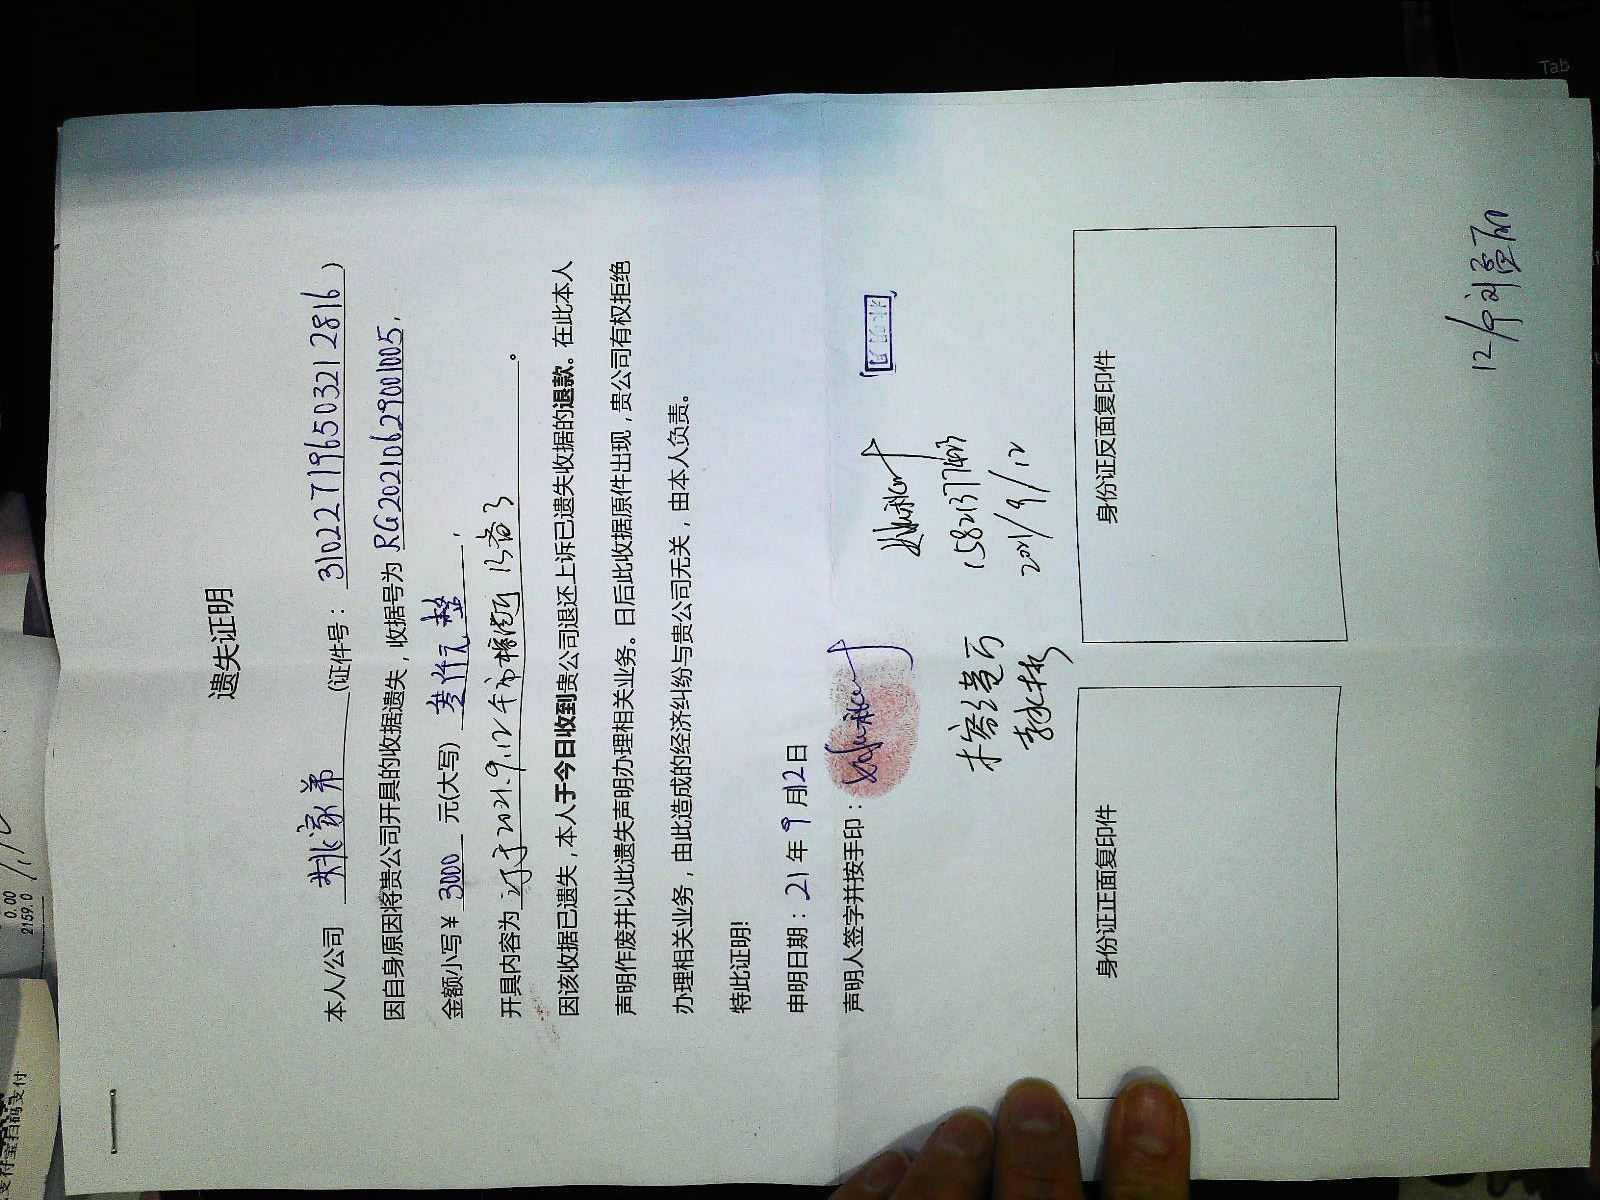 遗失证明
本人/公司 姚家弟 (证件号：310227196503212816)
因自身原因将贵公司开具的收据遗失，收据号为 RG20210629001005，
金额小写￥ 3000 元(大写) 叁仟元整，
开具内容为 2021.9.12 。
因该收据已遗失，本人于今日收到贵公司退还上诉已遗失收据的退款。在此本人
声明作废并以此遗失声明办理相关业务。日后此收据原件出现，贵公司有权拒绝
办理相关业务，由此造成的经济纠纷与贵公司无关，由本人负责。
特此证明!
申明日期：21年9月12日
声明人签字并按手印：
15821377403
2021/9/12
身份证正面复印件
身份证反面复印件
12/9
Tab
0.00
2159.0
支付宝扫码支付